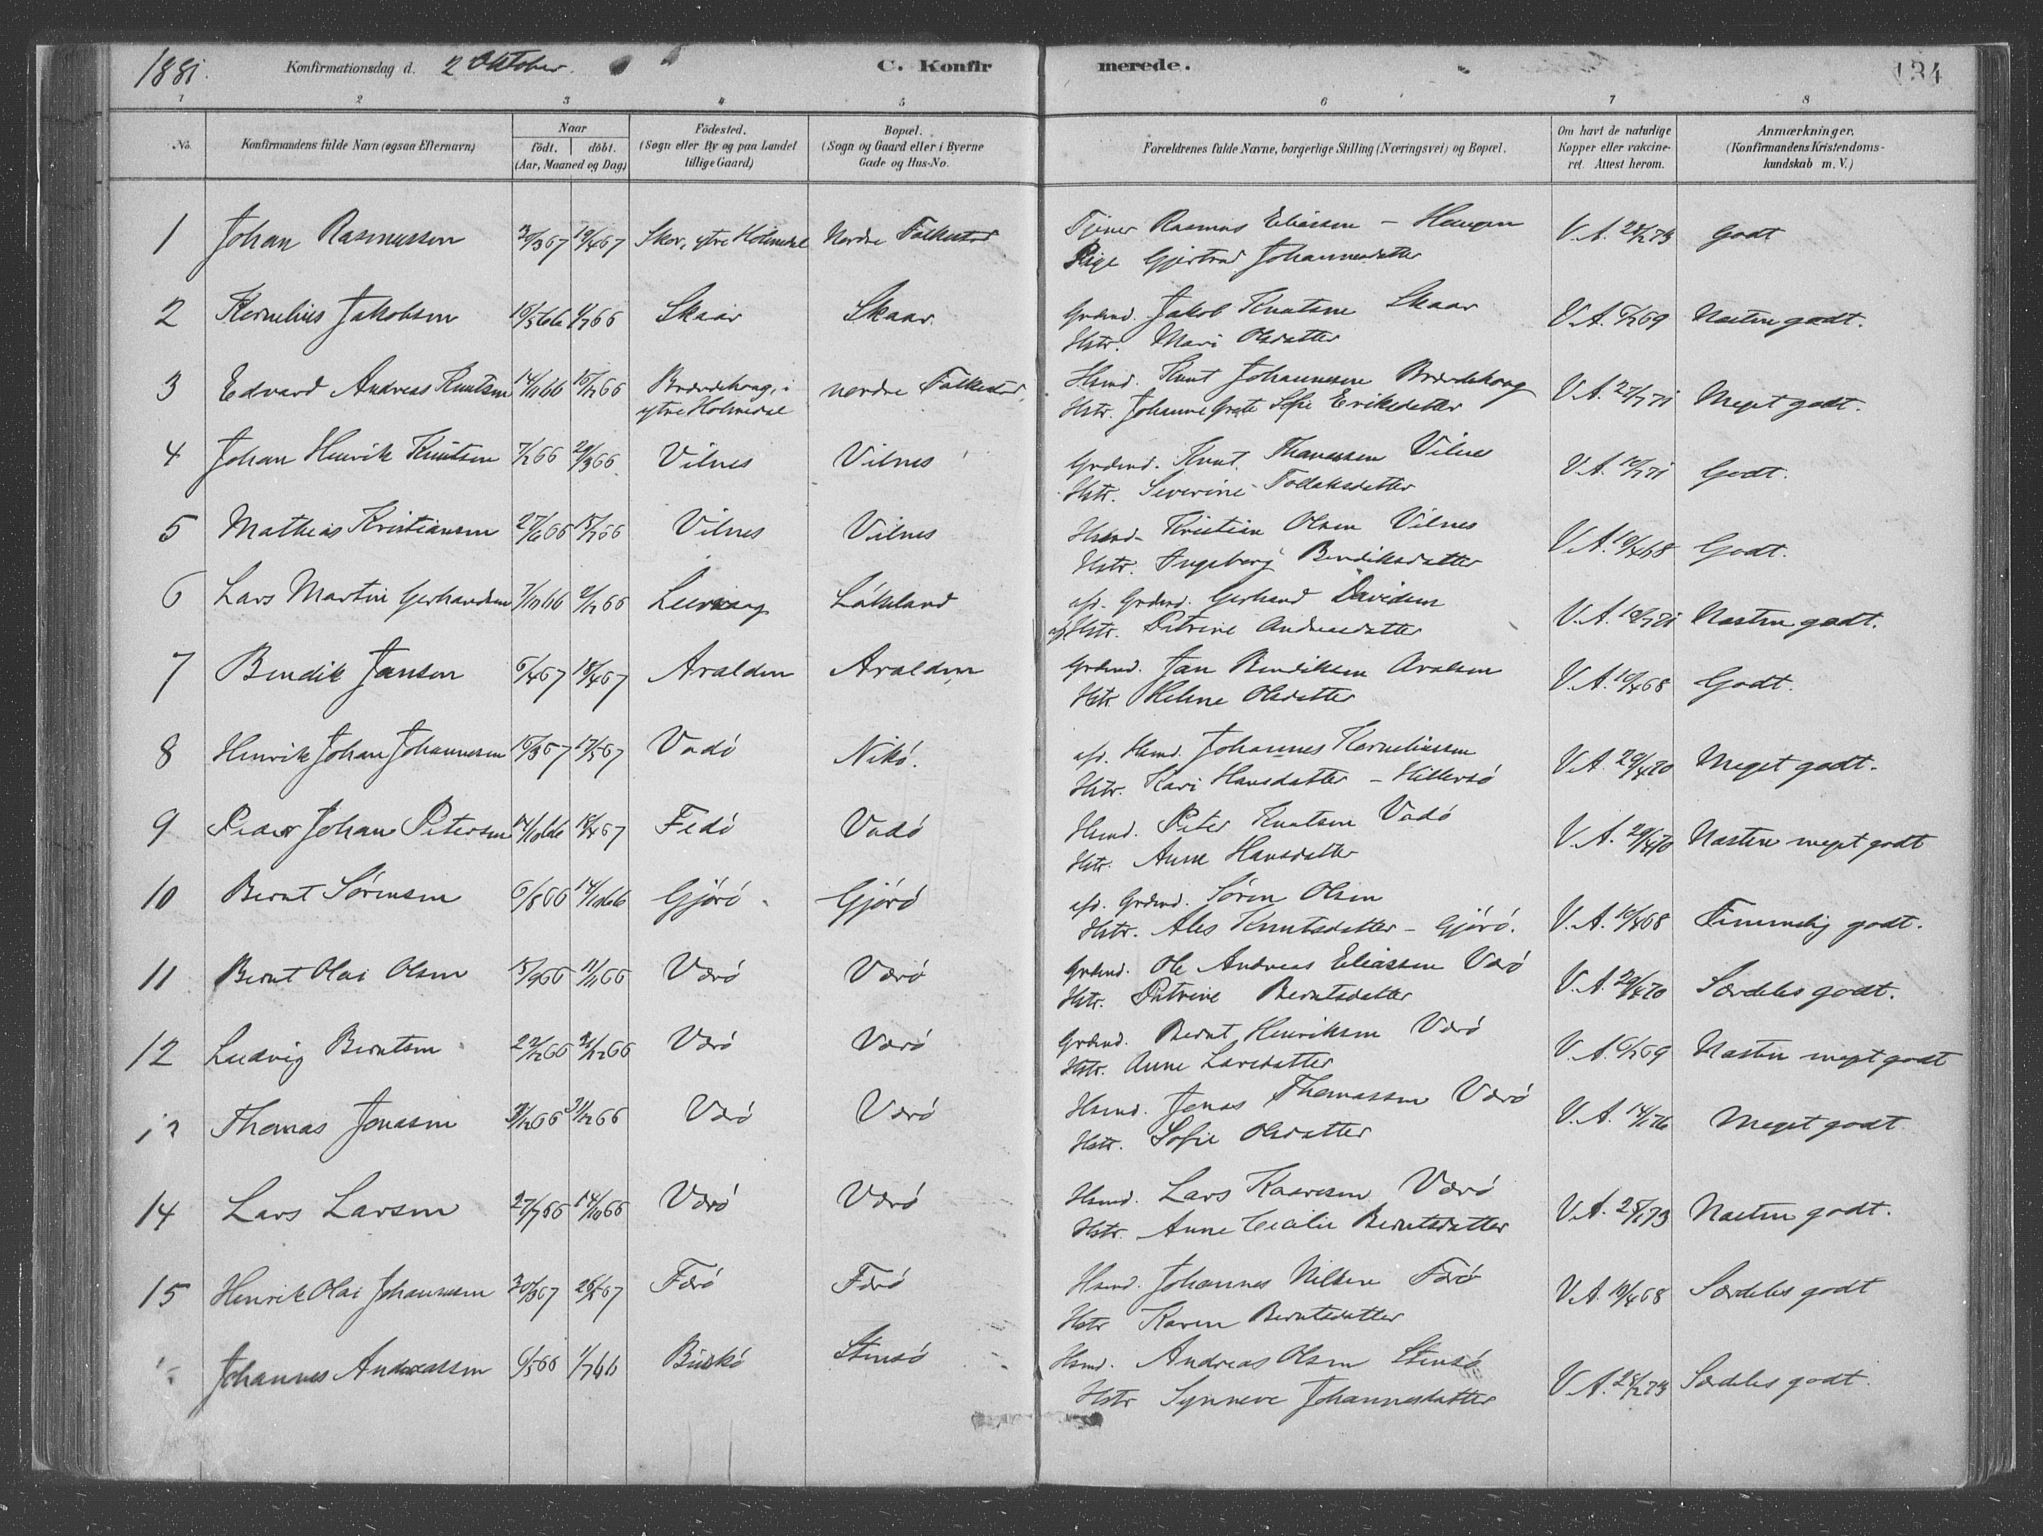 1881. Konfirmationsdag d. 2 Oktober. C. Konfir merede. 134
1 2 3 4 5 6 7 8
No. Konfirmandens fulde Navn (ogsaa Efternavn) Naar födt. döbt. (Aar, Maaned og Dag) Födested. (Sogn eller By og paa Landet tillige Gaard) Bopæl. (Sogn og Gaard eller i Byerne Gade og Hus-No. Forældrenes fulde Navne, borgerlige Stilling (Næringsvei) og Bopæl. Om havt de naturlige Kopper eller vakcineret. Attest herom. Anmærkninger. (Konfirmandens Kristendomskundskab m. V.)
1 Johan Rasmussen 19/4 67 Skor, ytre Holmedal Nordre Folkestad Tjener Rasmus Eliassen - Haugen V.A. 28/2 73 Godt
Pige Gjertrud Johannesdatter
2 Kornelius Jakobsen 10/5 66 1/7 66 Skaar Skaar. Grdmd. Jakob Knutsen Skaar V.A. 6/7 69 Næsten godt.
Hstr. Mari Olsdatter
3 Edvard Andreas Knutsen 14/11 66 15/12 66 i ytre Holmedal nordre Folkestad, Hsmd. Knut Johannesen V.A. 27/7 71 Meget godt.
Hstr. Johanne Grete Sofie Eriksdatter
4 Johan Henrik Knutsen 7/2 66 29/3 66 Vilnes Vilnes Grdmd. Knut Thomassen Vilnes V.A. 10/7 71 Godt.
Hstr. Severine Tollaksdatter
5 Mathias Kristiansen 27/6 66 15/7 66 Vilnes Vilnes Hsmd. Kristian Olsen Vilnes V.A. 10/4 68 Godt.
Hstr. Ingeborg Bendiksdatter
6 Lars Martin Gerhardsen 7/10 66 2/12 66 Leirvaag Låkeland afd. Grdmd. Gerhard Davidsen V.A. Næsten godt.
afd. Hstr. Petrine Andreasdatter
7 Bendik Jansen 6/4 67 18/4 67 Aralden Aralden Grdmd. Jan Bendiksen Aralden V.A. 10/4 68 Godt.
Hstr Helene Olsdatter
8 Henrik Johan Johannesen 15/3 67 17/5 67 Vadö Nikö. afd. Hsmd. Johannes Korneliussen V.A. 29/4 70 Meget godt.
Hstr. Kari Hansdatter - Hillersö
9 Peder Johan Petersen 14/10 66 18/4 67 Fedö Vadö Hsmd. Peter Knutsen Vadö V.A. 29/4 70 Næsten meget godt
Hstr. Anne Hansdatter
10 Bernt Sörensen 6/8 66 14/10 66 Gjörö Gjörö afd. Grdmd. Sören Olsen V.A. 10/4 68 Temmelig godt.
Hstr. Ales Knutsdatter - Gjörö.
11 Bernt Olai Olsen 15/9 66 11/11 66 Værö Værö Grdmd. Ole Andreas Eliassen Værö V.A. 29/4 70 Særdeles godt.
Hstr. Petrine Berntsdatter
12 Ludvig Berntsen Værö Værö Grdmd. Bernt Henriksen Værö V.A. 6/7 69 Næsten meget godt
Hstr. Anne Larsdatter
13 Thomas Jonassen Værö Værö Hsmd. Jonas Thomassen Værö V.A. 14/1 76 Meget godt
Hstr. Sofie Olsdatter
14 Lars Larsen 27/7 66 14/10 66 Værö Værö Hsmd. Lars Værö V.A. Næsten godt.
Hstr. Anne Cecilie Berntsdatter
15 Henrik Olai Johannesen 30/3 67 26/5 67 Færö Færö Hsmd. Johannes Nilsen Færö V.A. 10/4 68 Særdeles godt
Hstr Karen Berntsdatter
Johannes Andreassen 6/5 66 1/7 66 Buskö Stensö Hsmd. Andreas Olsen Stensö V.A. 28/2 73 Særdeles godt.
Hstr Synneve Johannesdatter